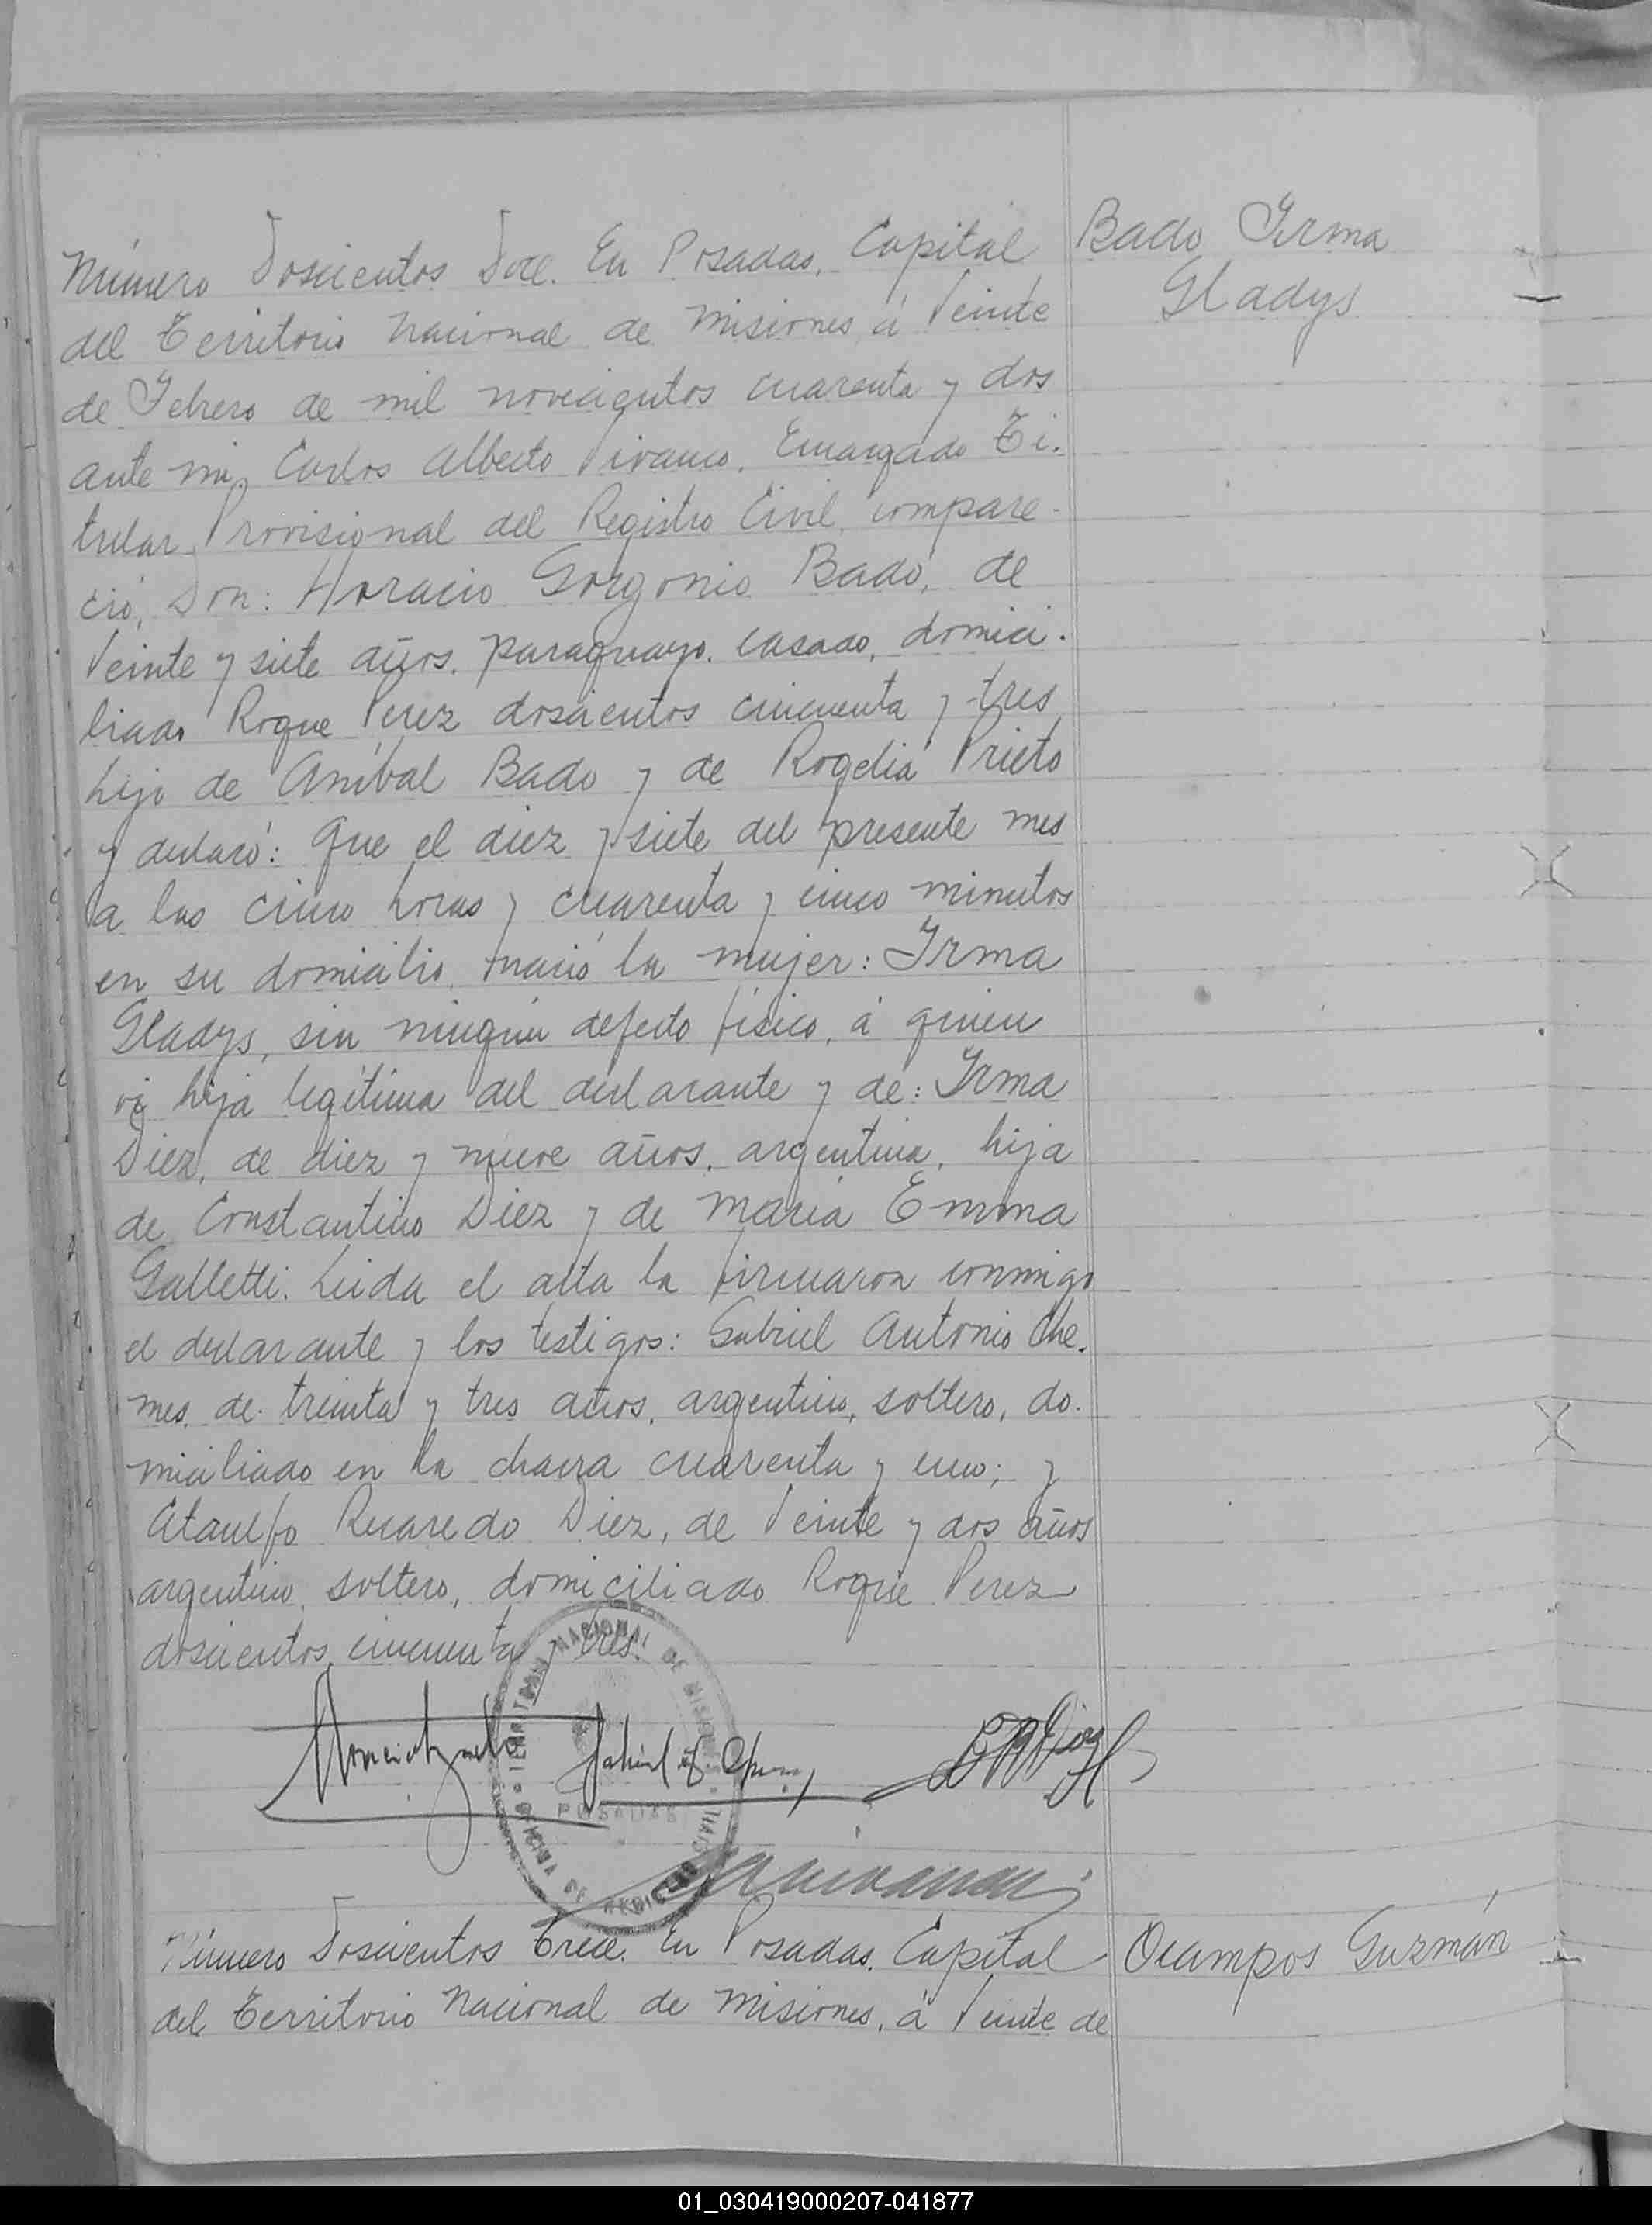 Bado Irma
Gladys
Número Doscientos Doce. En Posadas, Capital
del Territorio Nacional de Misiones, á Veinte
de Febrero de mil novecientos cuarenta y dos
ante mi, Carlos Alberto Vivanco, Encargado Ti-
tular Provisional del Registro Civil, compare-
ció, Don: Horacio Gorgonio Bado, de
Veinte y siete años, paraguayo, casado, domici-
liado Roque Perez doscientos cincuenta y tres,
hijo de Aníbal Bado y de Rogelia Prieto
y declaró: Que el diez y siete del presente mes
a las cinco horas y cuarenta y cinco minutos
en su domicilio, nació la mujer: Irma
Gladys, sin ningún defecto físico, á quien
vi hija legítima del declarante y de: Irma
Diez, de diez y nueve años, argentina, hija
de Constantino Diez y de María Emma
Galletti. Leida el acta la firmaron conmigo
el declarante y los testigos: Gabriel Antonio Che-
mes, de treinta y tres años, argentino, soltero, do-
miciliado en la chacra cuarenta y uno; y
Ataulfo Recaredo Diez, de Veinte y dos años
argentino, soltero, domiciliado Roque Perez
doscientos cincuenta y tres.
NACIONAL DE MISIONES
POSADAS
Número Doscientos Trece. En Posadas, Capital
del Territorio Nacional de Misiones, á Veinte de
Ocampos Guzmán
01_030419000207-041877